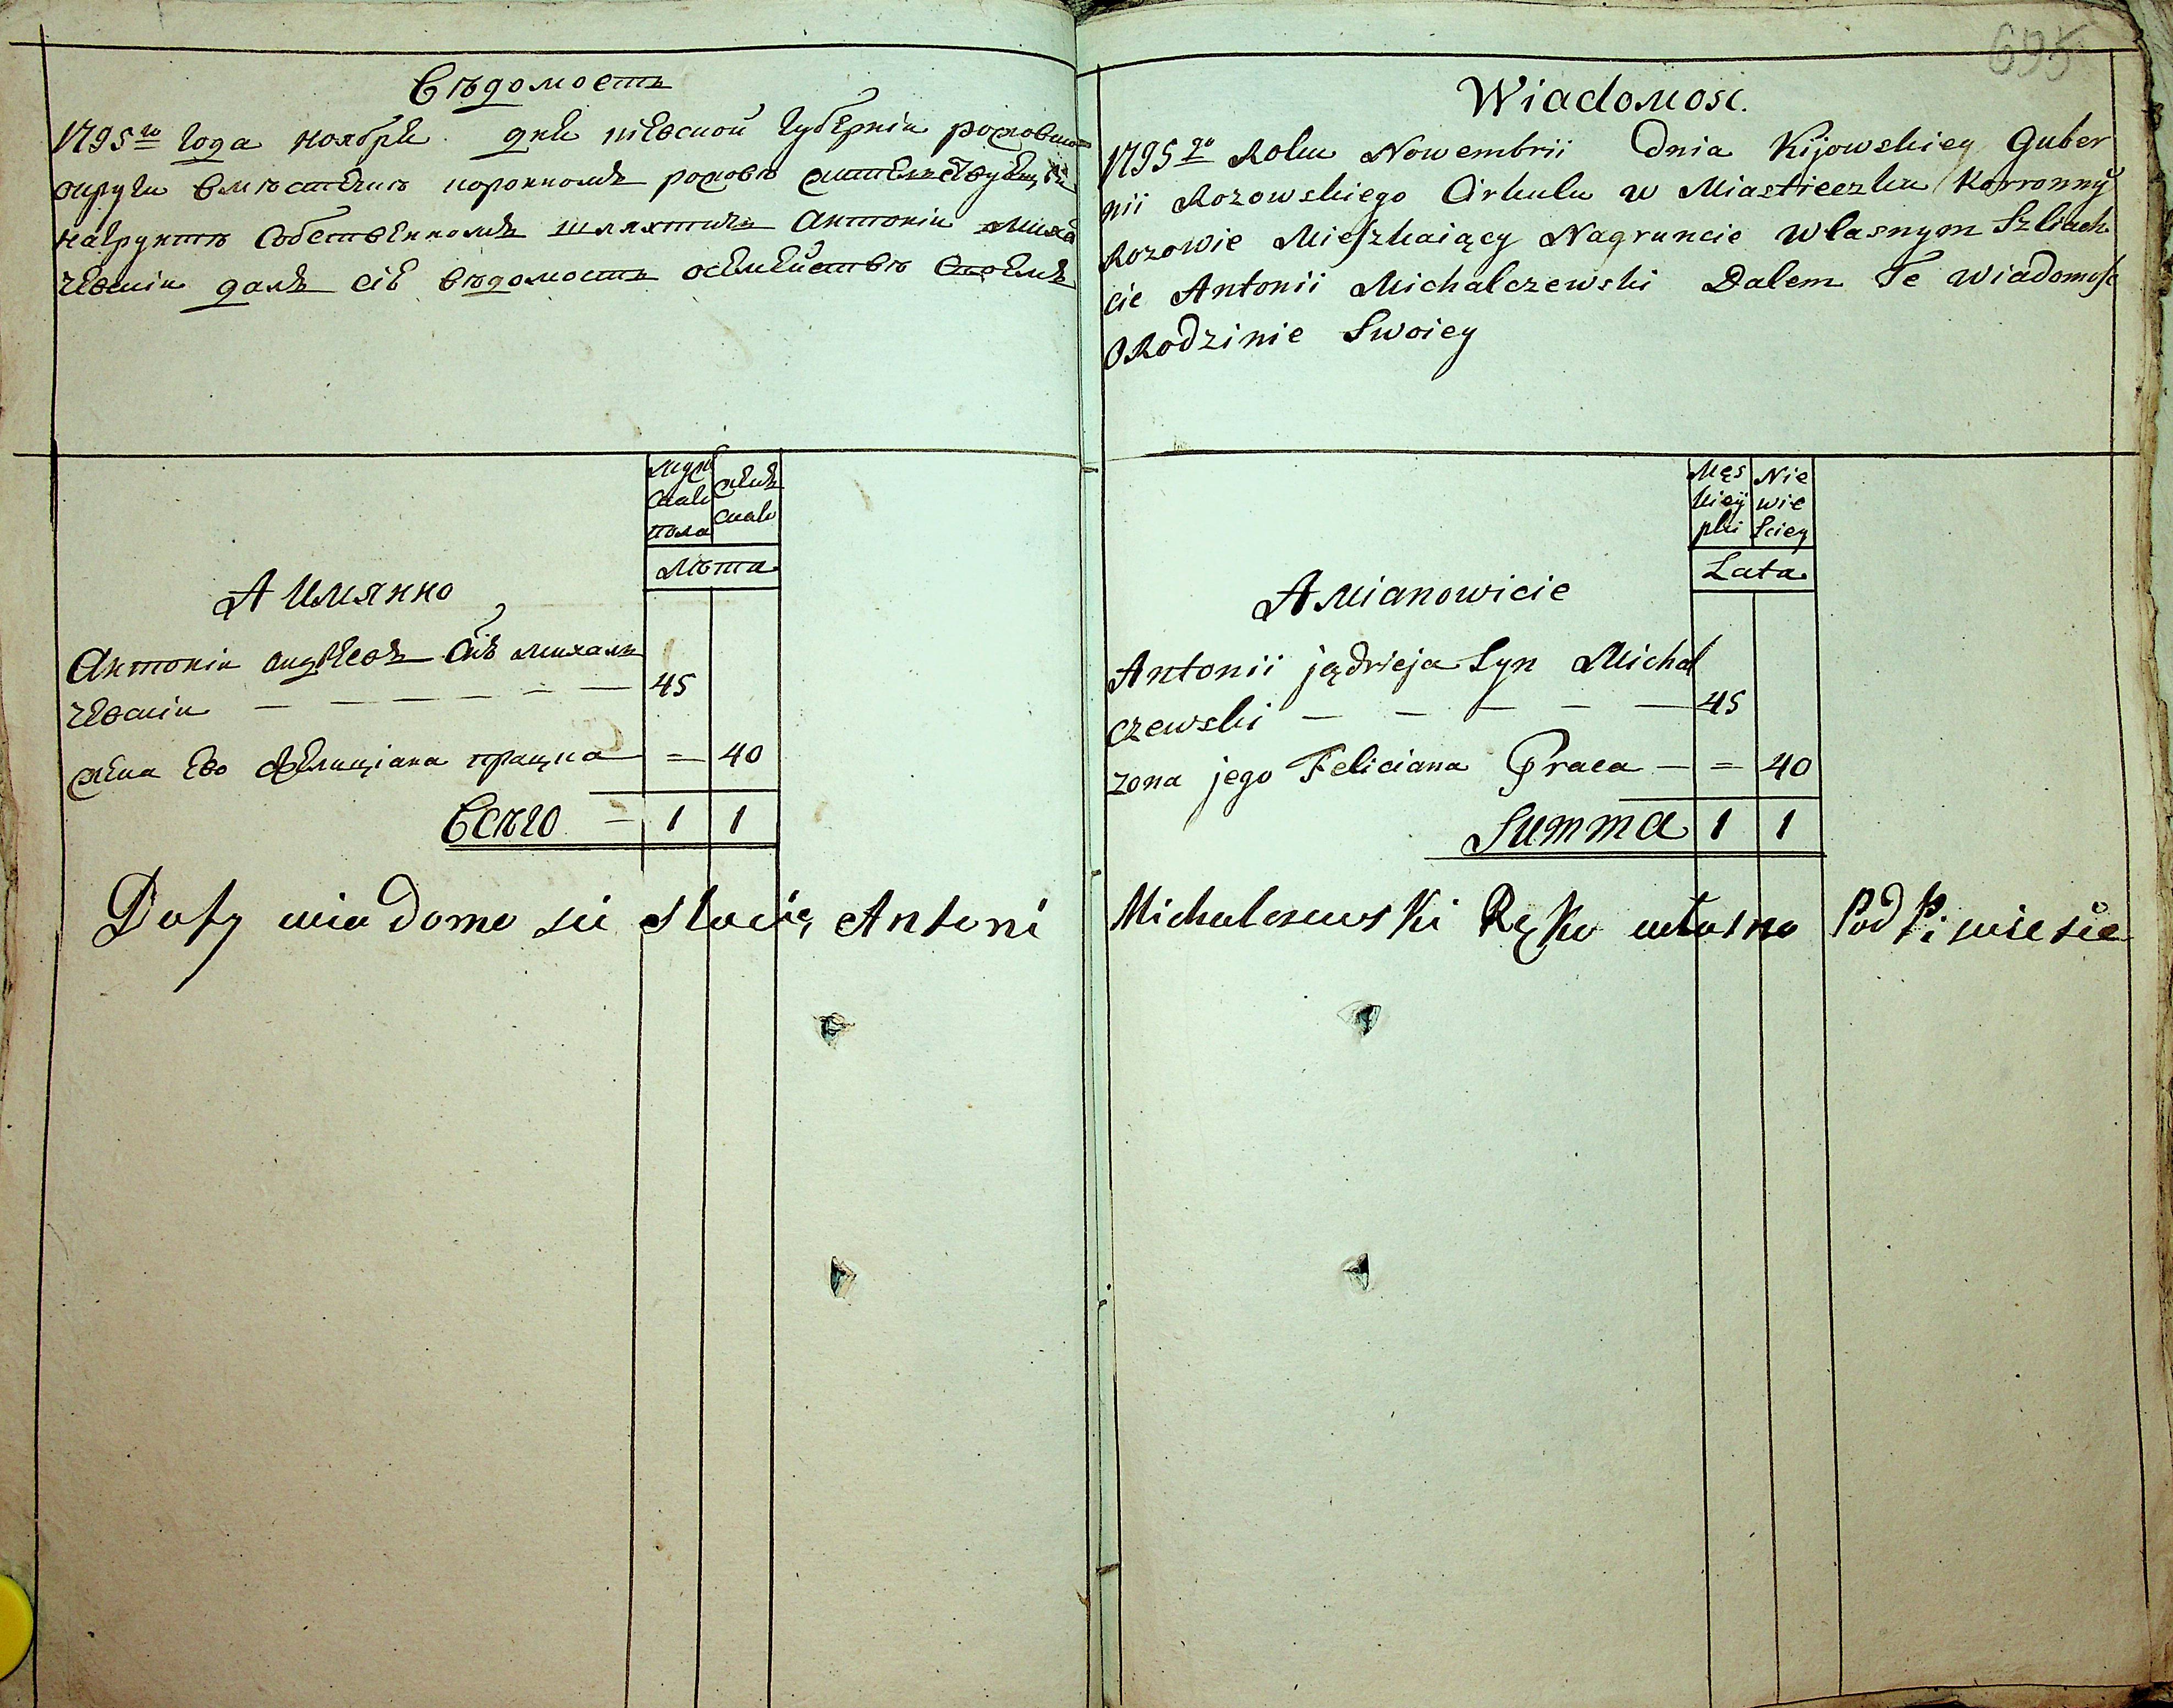 Вѣдомость
1795го Года ноября дня кіевской Губерніи рожовской
округи вмѣстечкѣ коронномъ рожовѣ жительствующій
нагрунтѣ Собственномъ шляхтичъ Антоніи Михал
чевскіи далъ сіе вѣдомость осемействѣ своемъ
муже
скаго
пола
женъ
скаго
Лѣта
А Имянно
Антоніи андреевъ Снъ михаль
чевскіи — — — — — 45
жена Ево Фелиціана працка = 40
Всего = 1 1
695
Wiadomosc.
1795go Roku Nowembrii Dnia Kijowskiey Guber
nii Rozowskiego Cirkulu w Miastieczku Korronny
Rozowie Mieszkaiący Nagruncie Własnym Szliach
cie Antonii Michalczewski Dalem Te Wiadomość
ORodzinie Swoiey
Męs
kiey
płci
Nie
wie
sciey
Lata
A Mianowicie
Antonii jądrieja Syn Michal
czewski — — — — — 45
zona jego Feliciana Praca — = 40
Summa 1 1
Do ty wiadomo sci Antoni Michalczewski Ręko własno Podpisuie sie